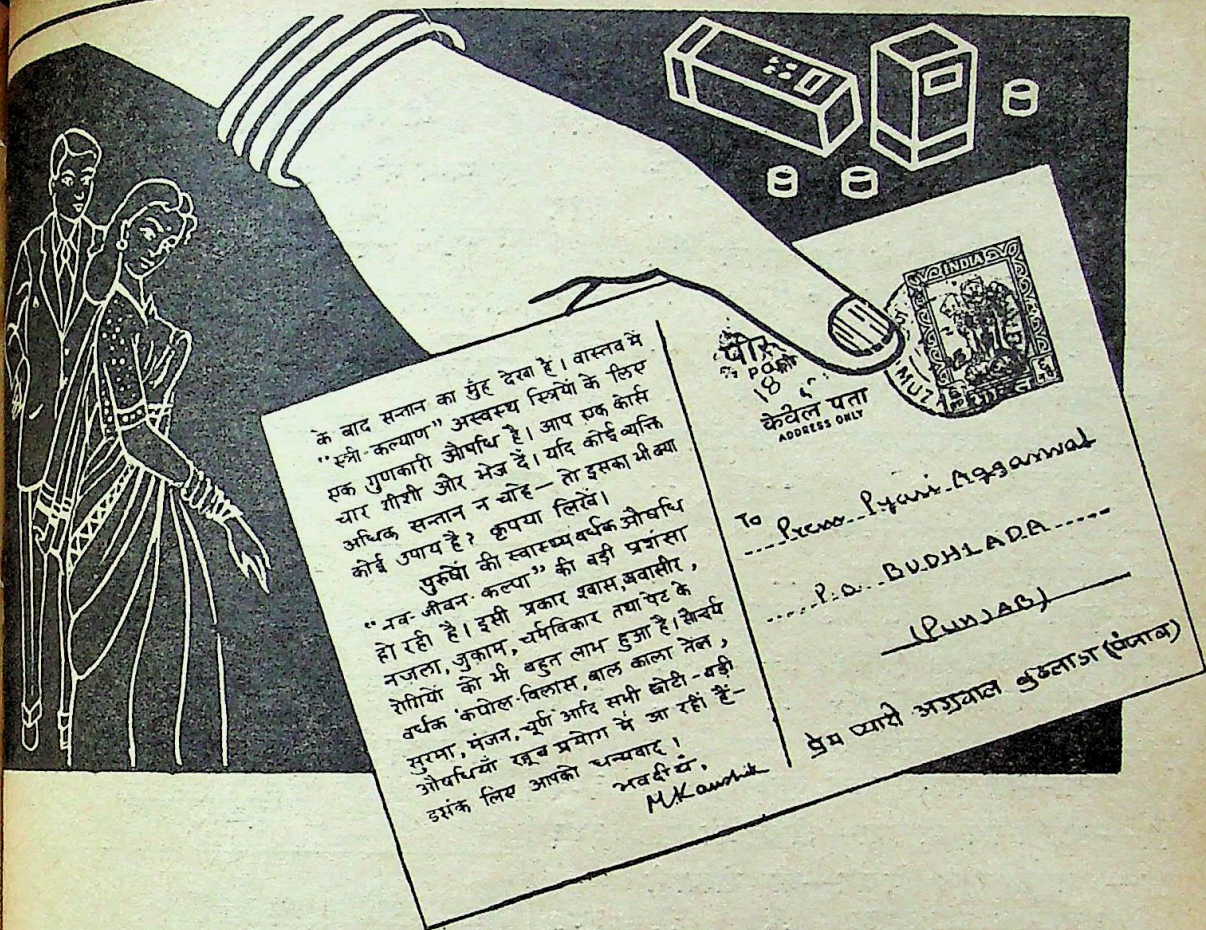 के बाद सन्तान का मुंह देखा है। वास्तव में
"स्त्री-कल्याण" अस्वस्थ स्त्रियों के लिए
एक गुणकारी औषधि है। आप एक कोर्स
चार शीशी और भेज दें। यदि कोई व्यक्ति
अधिक सन्तान न चाहे— तो इसका भी क्या
कोई उपाय है? कृपया लिखें।
पुरुषों की स्वास्थ्यवर्धक औषधि
"नव-जीवन-कल्पा" की बड़ी प्रशंसा
हो रही है। इसी प्रकार श्वास, बवासीर,
नजला, जुकाम, चर्मविकार तथा पेट के
रोगियों को भी बहुत लाभ हुआ है। सौन्दर्य
वर्धक 'कपोल-विलास, बाल काला तेल,
सुरमा, मंजन, चूर्ण आदि सभी छोटी-बड़ी
औषधियाँ खूब प्रयोग में आ रहीं हैं—
इसके लिए आपको धन्यवाद!
भवदीय,
M.Kaushik
INDIA
MUZ
केवल पता
ADDRESS ONLY
To Prem Pyari Aggarwal
P.O. BUDHLADA
(PUNJAB)
प्रेम प्यारी अग्रवाल बुढलाडा (पंजाब)